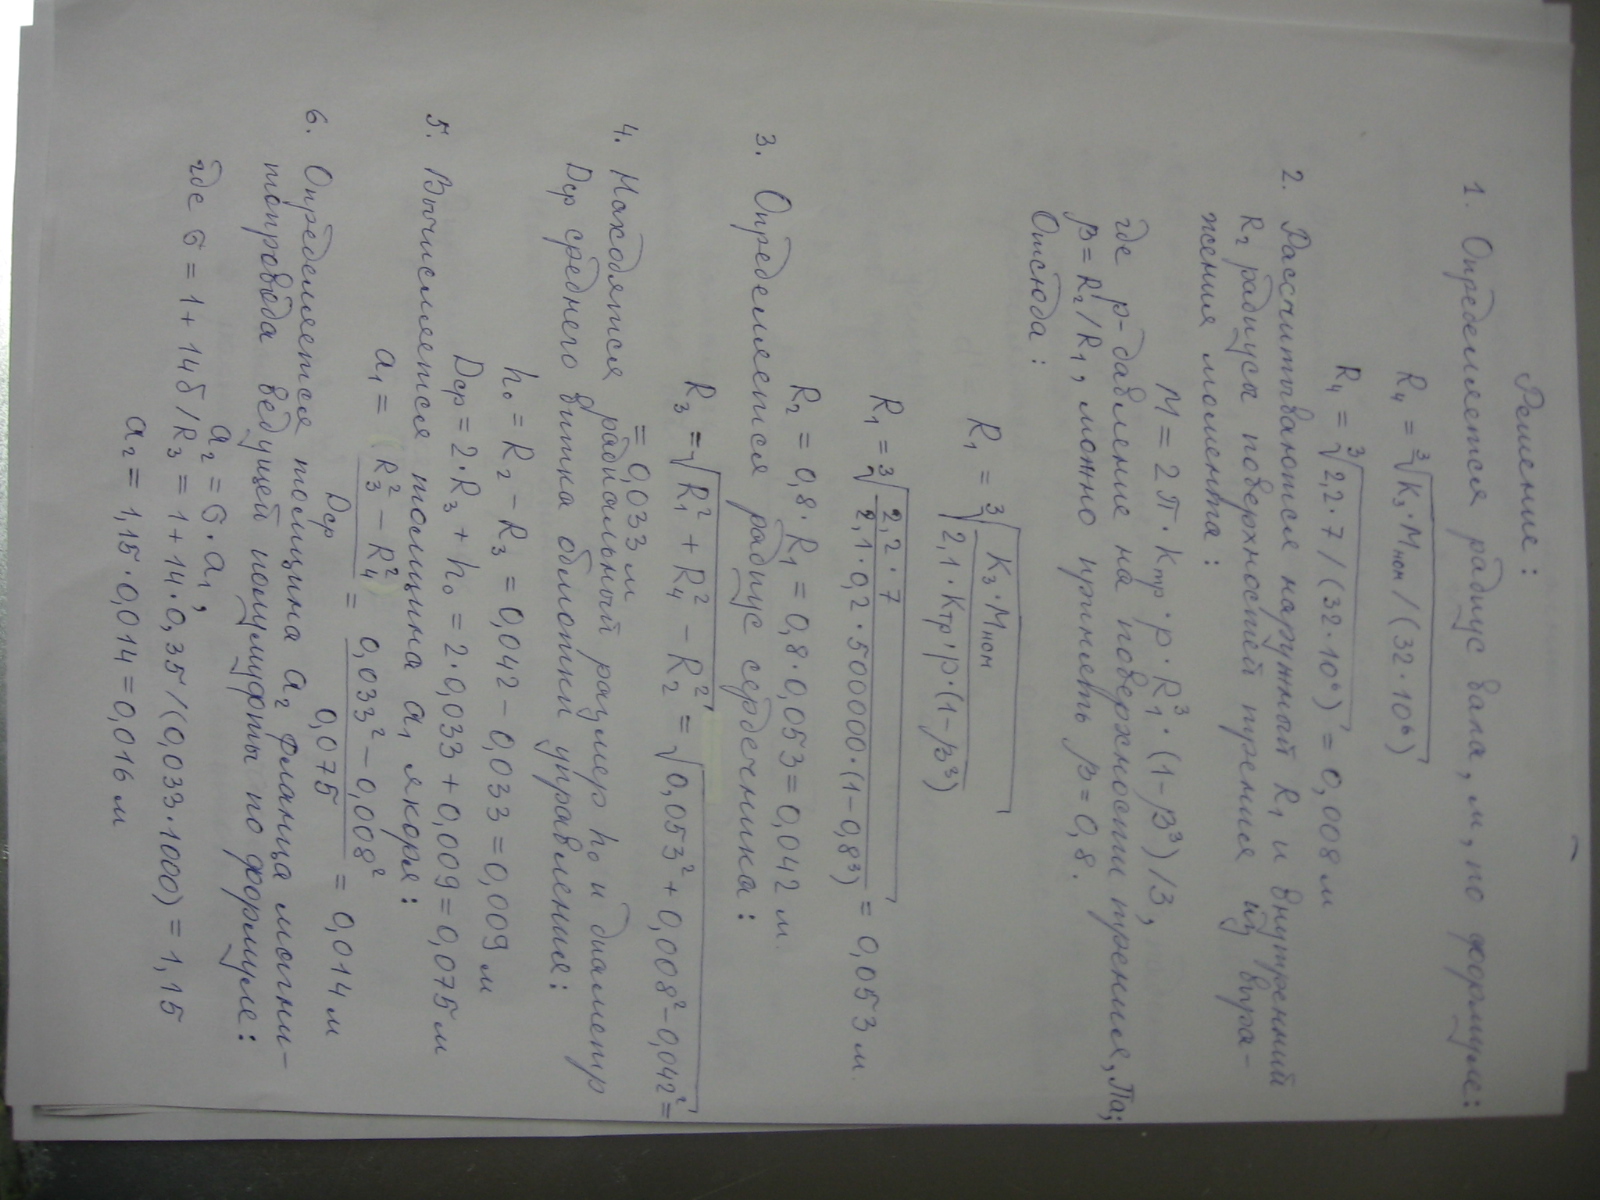 Решение:
1. Определяется радиус вала, м, по формуле:
R₄ = ∛(K₃·Mном/(32·10⁶))
R₄ = ∛(2,2·7/(32·10⁶)) = 0,008 м
2. Рассчитываются наружный R₁ и внутренний
R₂ радиусы поверхностей трения из выра-
жения момента:
M = 2π·kтр·p·R₁³·(1-β³)/3,
где p-давление на поверхности трения, Па;
β = R₂/R₁, можно принять β = 0,8.
Отсюда:
R₁ = ∛(K₃·Mном / (2,1·Kтр·p·(1-β³)))
R₁ = ∛(2,2·7 / (2,1·0,2·500000·(1-0,8³))) = 0,053 м.
R₂ = 0,8·R₁ = 0,8·0,053 = 0,042 м.
3. Определяется радиус сердечника:
R₃ = √(R₁² + R₄² - R₂²) = √(0,053² + 0,008² - 0,042²) =
= 0,033 м
4. Находятся радиальный размер h₀ и диаметр
Dср среднего витка обмотки управления:
h₀ = R₂ - R₃ = 0,042 - 0,033 = 0,009 м
Dср = 2·R₃ + h₀ = 2·0,033 + 0,009 = 0,075 м
5. Вычисляется толщина a₁ якоря:
a₁ = (R₃² - R₄²) / Dср = (0,033² - 0,008²) / 0,075 = 0,014 м
6. Определяется толщина a₂ фланца магни-
топровода ведущей полумуфты по формуле:
a₂ = б·a₁,
где б = 1 + 14δ/R₃ = 1 + 14·0,35/(0,033·1000) = 1,15
a₂ = 1,15·0,014 = 0,016 м